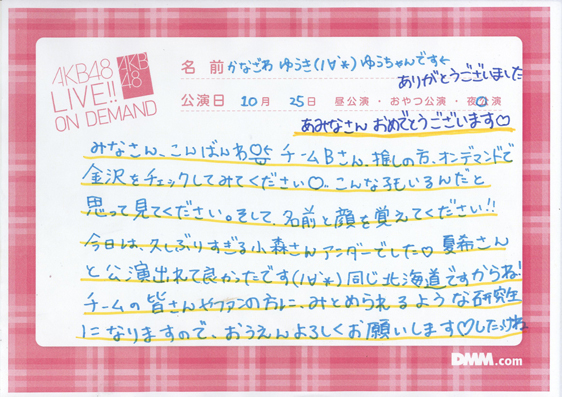 AKB48
LIVE!!
ON DEMAND
AKB
48
名 前 かなざわ ゆうき(ﾉ∀*) ゆうちゃんです←
ありがとうございました
公演日 10月 25日 昼公演・おやつ公演・夜公演
あみなさん おめでとうございます♡
みなさん、こんばんわ チームBさん、推しの方、オンデマンドで
金沢をチェックしてみてください♡。こんな子もいるんだと
思って見てください。そして、名前と顔を覚えてください!!
今日は、久しぶりすぎる小森さんアンダーでした♡ 夏希さん
と公演出れて良かったです(ﾉ∀*)同じ北海道ですからね!
チームの皆さんやファンの方に、みとめられるような研究生
になりますので、おうえんよろしくお願いします♡したっけね
DMM.com